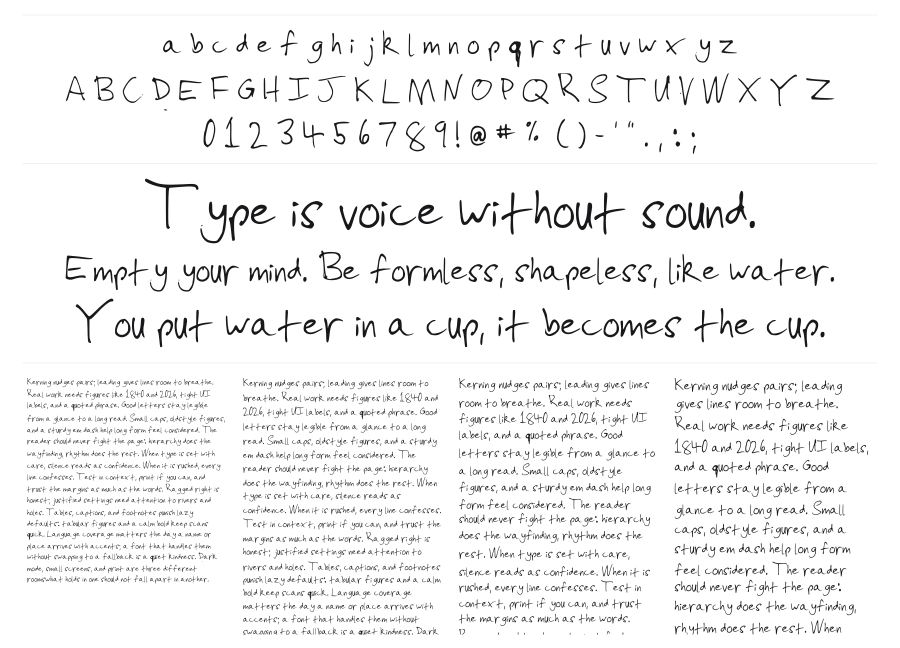 a b c d e f g h i j k l m n o p q r s t u v w x y z
A B C D E F G H I J K L M N O P Q R S T U V W X Y Z
0 1 2 3 4 5 6 7 8 9 ! @ # % ( ) - ' " . , : ;
Type is voice without sound.
Empty your mind. Be formless, shapeless, like water.
You put water in a cup, it becomes the cup.
Kerning nudges pairs; leading gives lines room to breathe.
Real work needs figures like 1840 and 2026, tight UI
labels, and a quoted phrase. Good letters stay legible
from a glance to a long read. Small caps, oldstyle figures,
and a sturdy em dash help long form feel considered. The
reader should never fight the page: hierarchy does the
wayfinding, rhythm does the rest. When type is set with
care, silence reads as confidence. When it is rushed, every
line confesses. Test in context, print if you can, and
trust the margins as much as the words. Ragged right is
honest; justified settings need attention to rivers and
holes. Tables, captions, and footnotes punish lazy
defaults: tabular figures and a calm bold keep scans
quick. Language coverage matters the day a name or
place arrives with accents; a font that handles them
without swapping to a fallback is a quiet kindness. Dark
mode, small screens, and print are three different
rooms; what holds in one should not fall apart in another.
Kerning nudges pairs; leading gives lines room to
breathe. Real work needs figures like 1840 and
2026, tight UI labels, and a quoted phrase. Good
letters stay legible from a glance to a long
read. Small caps, oldstyle figures, and a sturdy
em dash help long form feel considered. The
reader should never fight the page: hierarchy
does the wayfinding, rhythm does the rest. When
type is set with care, silence reads as
confidence. When it is rushed, every line confesses.
Test in context, print if you can, and trust the
margins as much as the words. Ragged right is
honest; justified settings need attention to
rivers and holes. Tables, captions, and footnotes
punish lazy defaults: tabular figures and a calm
bold keep scans quick. Language coverage
matters the day a name or place arrives with
accents; a font that handles them without
swapping to a fallback is a quiet kindness. Dark
Kerning nudges pairs; leading gives lines
room to breathe. Real work needs
figures like 1840 and 2026, tight UI
labels, and a quoted phrase. Good
letters stay legible from a glance to
a long read. Small caps, oldstyle
figures, and a sturdy em dash help long
form feel considered. The reader
should never fight the page: hierarchy
does the wayfinding, rhythm does the
rest. When type is set with care,
silence reads as confidence. When it is
rushed, every line confesses. Test in
context, print if you can, and trust
the margins as much as the words.
Kerning nudges pairs; leading
gives lines room to breathe.
Real work needs figures like
1840 and 2026, tight UI labels,
and a quoted phrase. Good
letters stay legible from a
glance to a long read. Small
caps, oldstyle figures, and a
sturdy em dash help long form
feel considered. The reader
should never fight the page:
hierarchy does the wayfinding,
rhythm does the rest. When